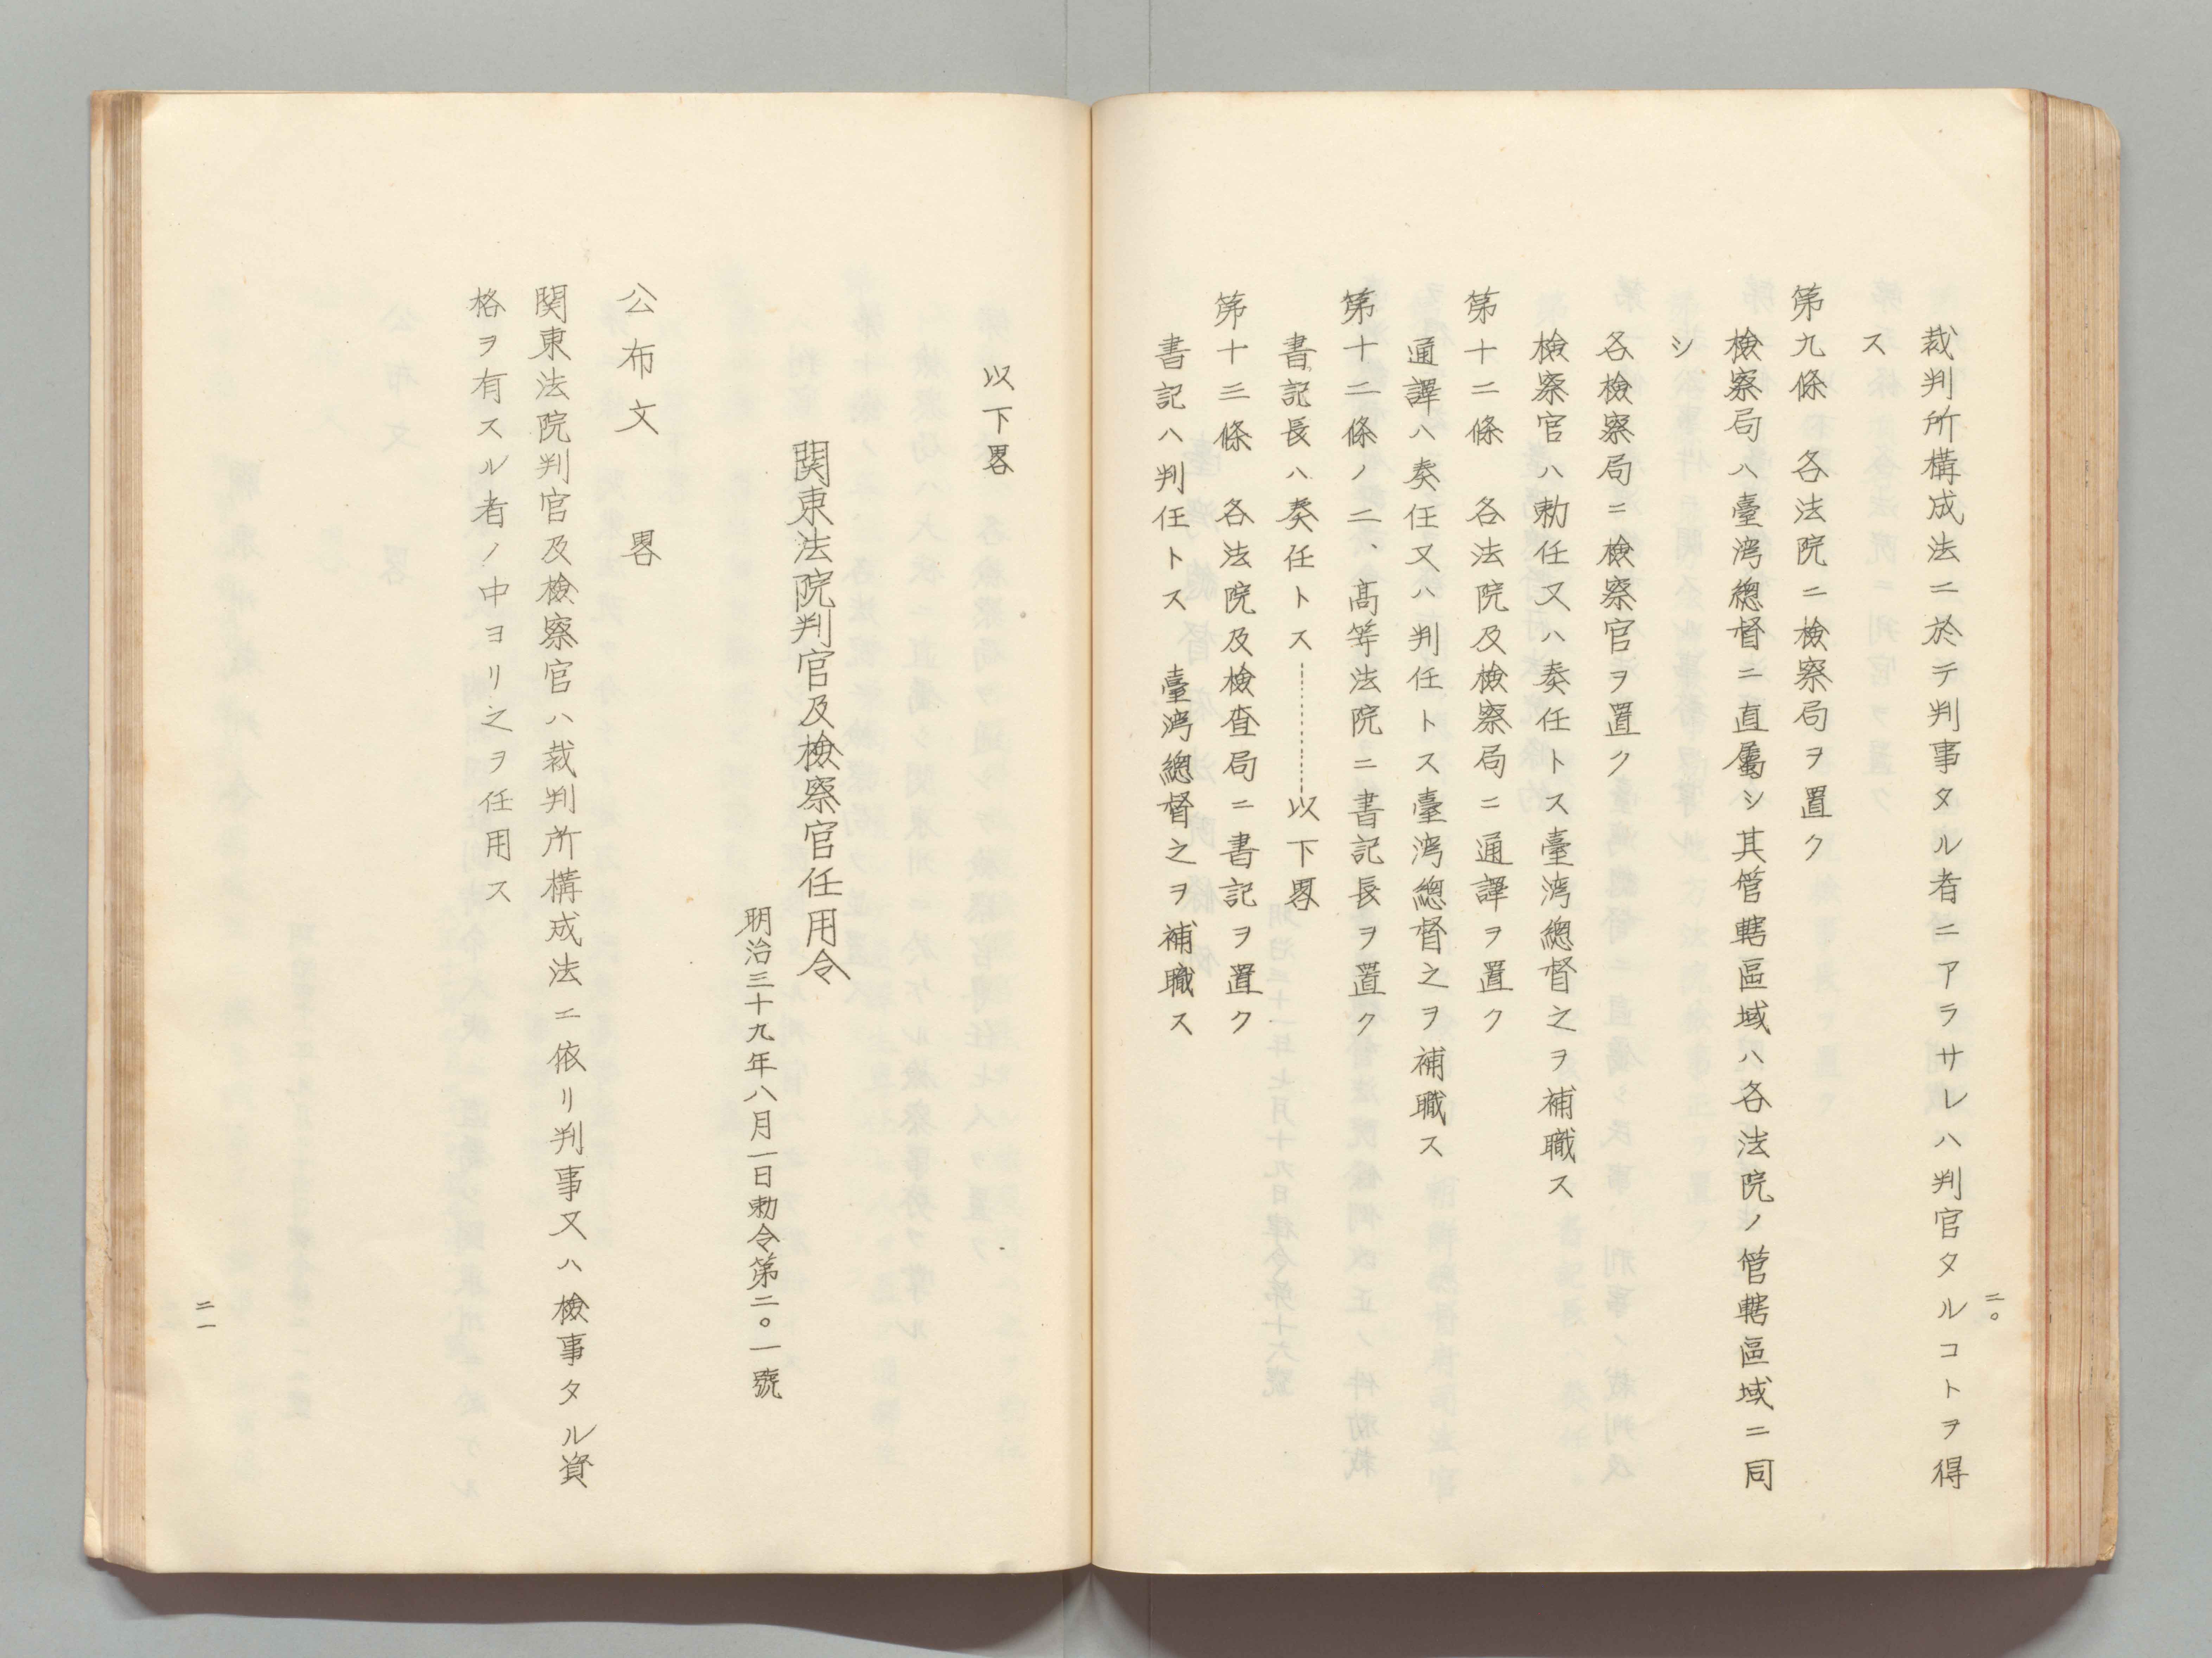 裁判所構成法ニ於テ判事タル者ニアラサレハ判官タルコトヲ得
ス
第九條　各法院ニ檢察局ヲ置ク
檢察局ハ臺灣總督ニ直屬シ其管轄區域ハ各法院ノ管轄區域ニ同
シ
各檢察局ニ檢察官ヲ置ク
檢察官ハ勅任又ハ奏任トス臺灣總督之ヲ補職ス
第十二條　各法院及檢察局ニ通譯ヲ置ク
通譯ハ奏任又ハ判任トス臺灣總督之ヲ補職ス
第十二條ノ二、高等法院ニ書記長ヲ置ク
書記長ハ奏任トス…………以下畧
第十三條　各法院及檢查局ニ書記ヲ置ク
書記ハ判任トス　臺灣總督之ヲ補職ス
二〇
以下畧
関東法院判官及檢察官任用令
明治三十九年八月一日勅令第二〇一號
公布文　畧
関東法院判官及檢察官ハ裁判所構成法ニ依リ判事又ハ檢事タル資
格ヲ有スル者ノ中ヨリ之ヲ任用ス
二一